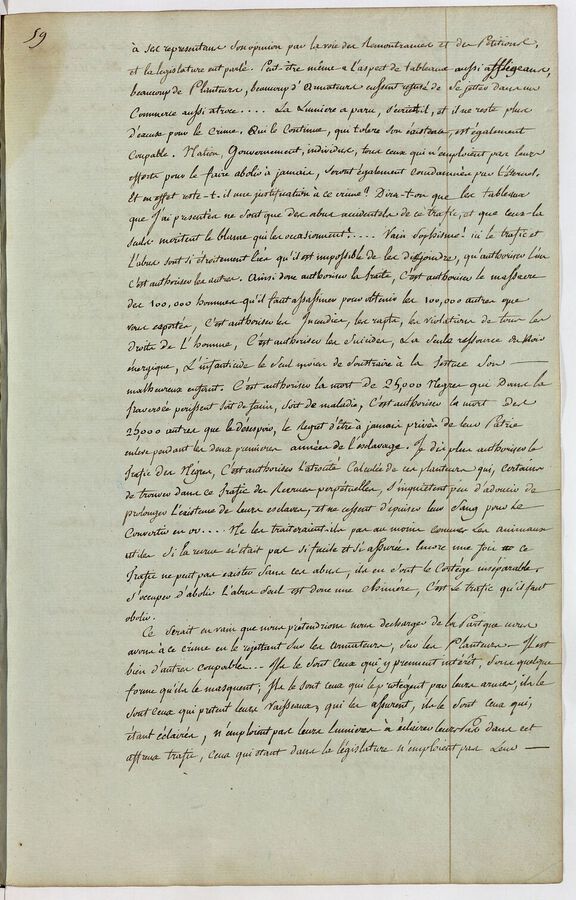 59
à ses representans son opinion par la voie des Remontrances et des Petitions,
et la legislature eut parlé. Peut-être même à l'aspect de tableaux aussi affligeans,
beaucoup de Planteurs, beaucoup d'Armateurs eussent refusé de se jetter dans un
Commerce aussi atroce.... La Lumiere a paru, et il ne reste plus
d'excuse pour le crime. Qui le Continue, qui tolere son existence, est également
Coupable. Nation, Gouvernement, individus, tous ceux qui n'emploient pas leurs
efforts pour le faire abolir à jamais, seront également condamnés par l'Eternel.
Et en effet reste-t-il une justification à ce crime? Dira-t-on que les tableaux
que j'ai presentés ne sont que des abus accidentels de ce trafic, et que ceux-là
seuls meritent le blame qui les occasionnent?.... Vain sophisme! ici le trafic et
l'abus sont si étroitement liés qu'il est impossible de les disjoindre, qu'authoriser l'un
C'est authoriser les autres. Ainsi donc authoriser la traite, C'est authoriser le massacre
des 100,000 hommes qu'il faut assassiner pour obtenir les 100,000 autres que
vous exportés, C'est authoriser les Incendies, les rapts, les violations de tous les
droits de L'homme, C'est authoriser les Suicides, La seule ressource du Noir
énergique, L'infanticide le seul moien de soustraire à la torture son
malheureux enfant. C'est authoriser la mort de 25,000 Negres qui Dans la
traversée perissent soit de faim, soit de maladie, C'est authoriser la mort des
25,000 autres que le desespoir, le Regret d'être à jamais privés de leur Patrie
enleve pendant les deux premieres années de l'esclavage. Je dis plus authoriser le
Trafic des Negres, C'est authoriser l'atrocité Calculée de ces planteurs qui, Certains
de trouver dans ce Trafic des Recrues perpetuelles, s'inquietent peu d'adoucir de
prolonger l'existence de leurs esclaves, et ne cessent d'épuiser leur sang pour le
Convertir en or.... Ne les traiteraient-ils pas au moins comme des animaux
utiles si la recrue n'était pas si facile et si assurée. Encore une fois ce
Trafic ne peut pas exister sans ces abus, ils en sont le Cortége inséparable.
S'occuper d'abolir l'abus seul est donc une chimére, C'est le trafic qu'il faut
abolir.
Ce serait en vain que nous prétendrions nous decharger de la Part que nous
avons à ce crime en le rejettant sur les armateurs, sur les Planteurs — Il est
bien d'autres Coupables... Ils le sont Ceux qui y prennent intérêt, sous quelque
forme qu'ils se masquent; Ils le sont ceux qui le protégent par leurs armes, ils le
sont ceux qui prétent leurs Vaisseaux, qui les assurent, ils le sont ceux qui,
étant éclairés, n'emploient pas leurs lumieres à éclairer dans cet
affreux trafic, ceux qui étant dans la législature n'emploient pas Leur —